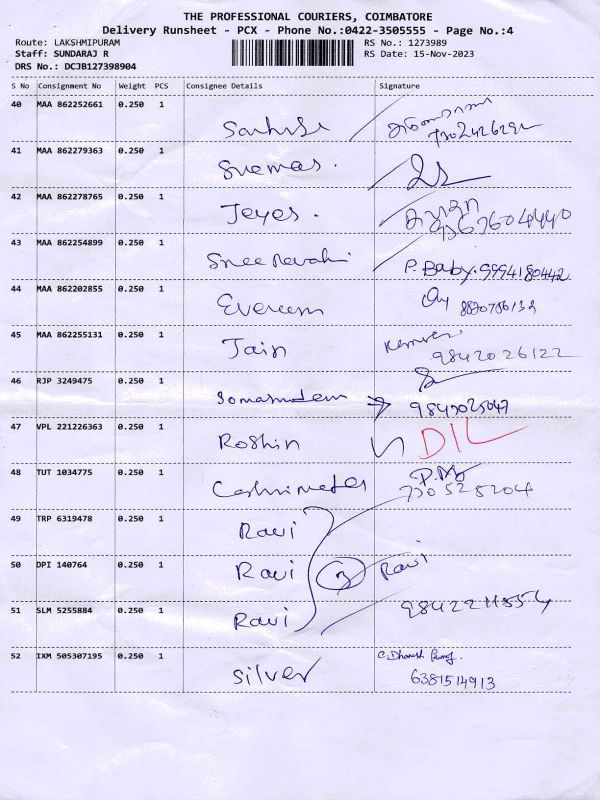 THE PROFESSIONAL COURIERS, COIMBATORE
Delivery Runsheet - PCX - Phone No.:0422-3505555 - Page No.:4
Route: LAKSHMIPURAM RS No.: 1273989
Staff: SUNDARAJ R RS Date: 15-Nov-2023
DRS No.: DCJB127398904
S No Consignment No Weight PCS Consignee Details Signature
40 MAA 862252661 0.250 1
41 MAA 862279363 0.250 1
42 MAA 862278765 0.250 1 Jeyes.
43 MAA 862254899 0.250 1 P. Baby. 9994180442
44 MAA 862202855 0.250 1
45 MAA 862255131 0.250 1 Jain
9842026122
46 RJP 3249475 0.250 1
47 VPL 221226363 0.250 1 Roshin DIL
48 TUT 1034775 0.250 1
7305252204
49 TRP 6319478 0.250 1 Ravi
50 DPI 140764 0.250 1 Ravi 3 Ravi
51 SLM 5255884 0.250 1 Ravi
52 IXM 505307195 0.250 1 Silver
6381514913